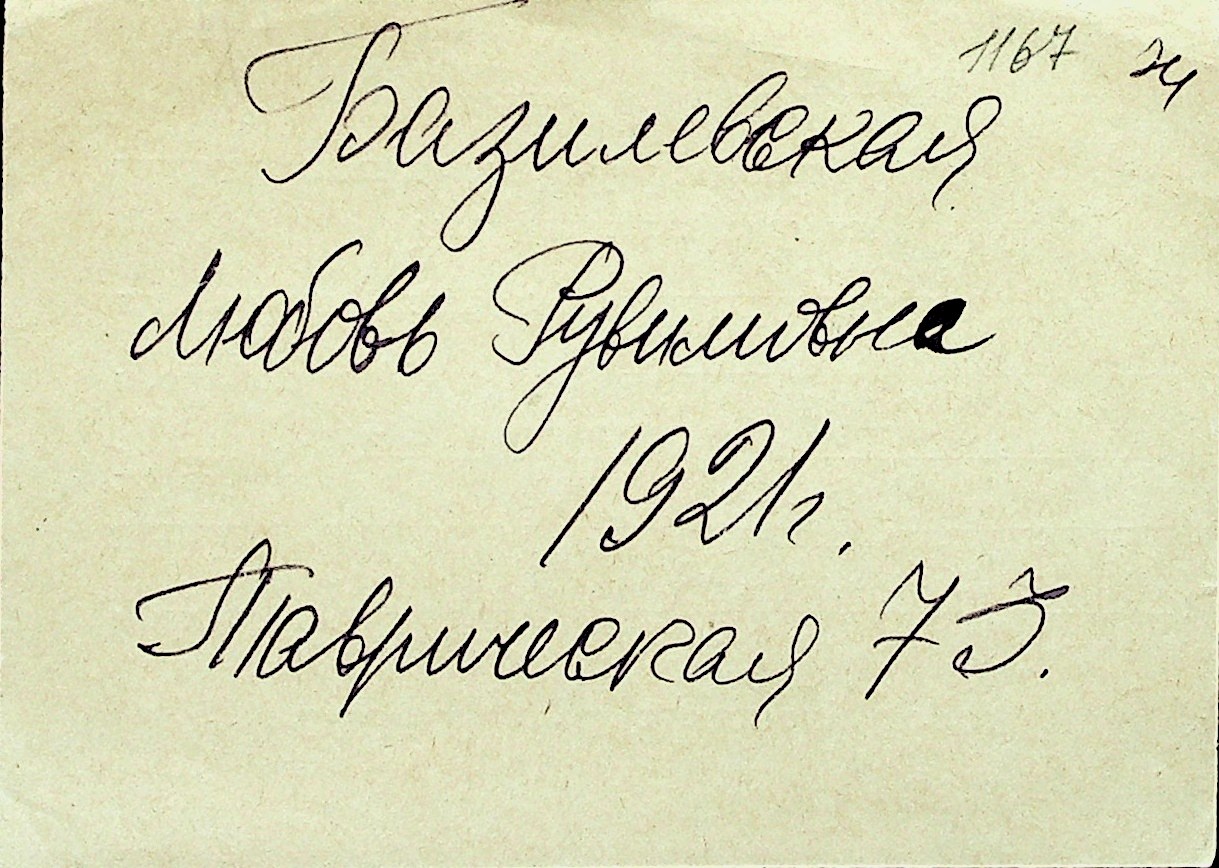 1167
Базилевская
Любовь Рувимовна
1921г.
Таврическая 73.